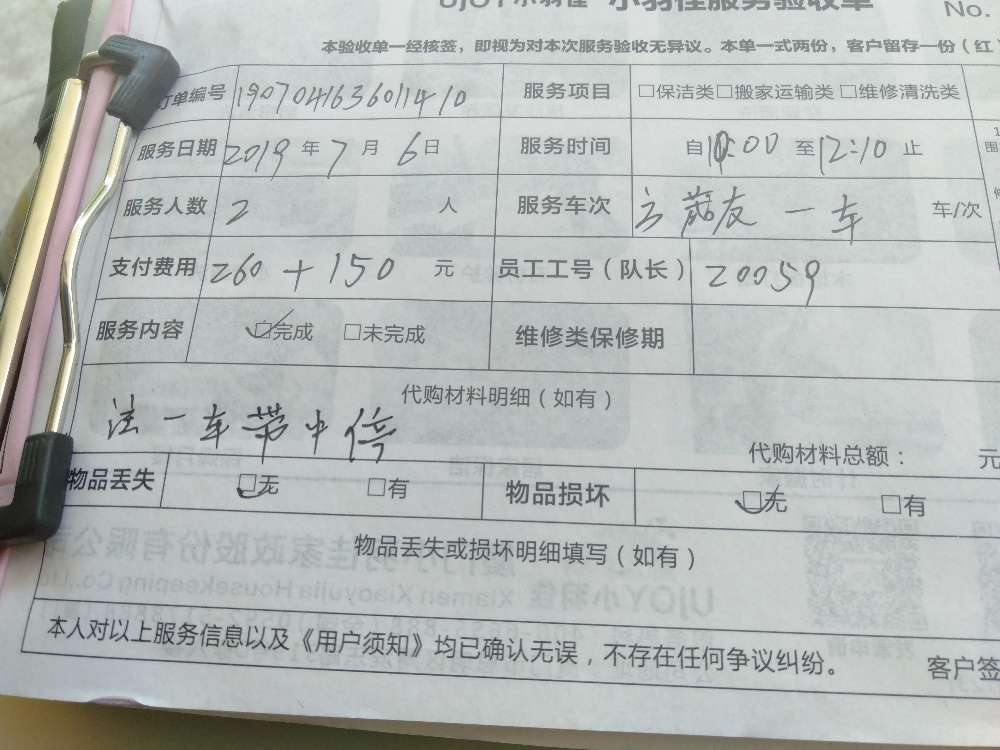 UJOY小羽佳 小羽佳服务验收单
No.
本验收单一经核签，即视为对本次服务验收无异议。本单一式两份，客户留存一份（红
订单编号 190704163601410 服务项目 □保洁类□搬家运输类 □维修清洗类
服务日期 2019 年 7 月 6 日 服务时间 自10:00 至12:10 止
服务人数 2 人 服务车次 一车 车/次
支付费用 260+150 元 员工工号（队长） 20059
服务内容 ☑完成 □未完成 维修类保修期
代购材料明细（如有）
一车带中停
代购材料总额： 元
物品丢失 ☑无 □有 物品损坏 ☑无 □有
物品丢失或损坏明细填写（如有）
本人对以上服务信息以及《用户须知》均已确认无误，不存在任何争议纠纷。
客户签